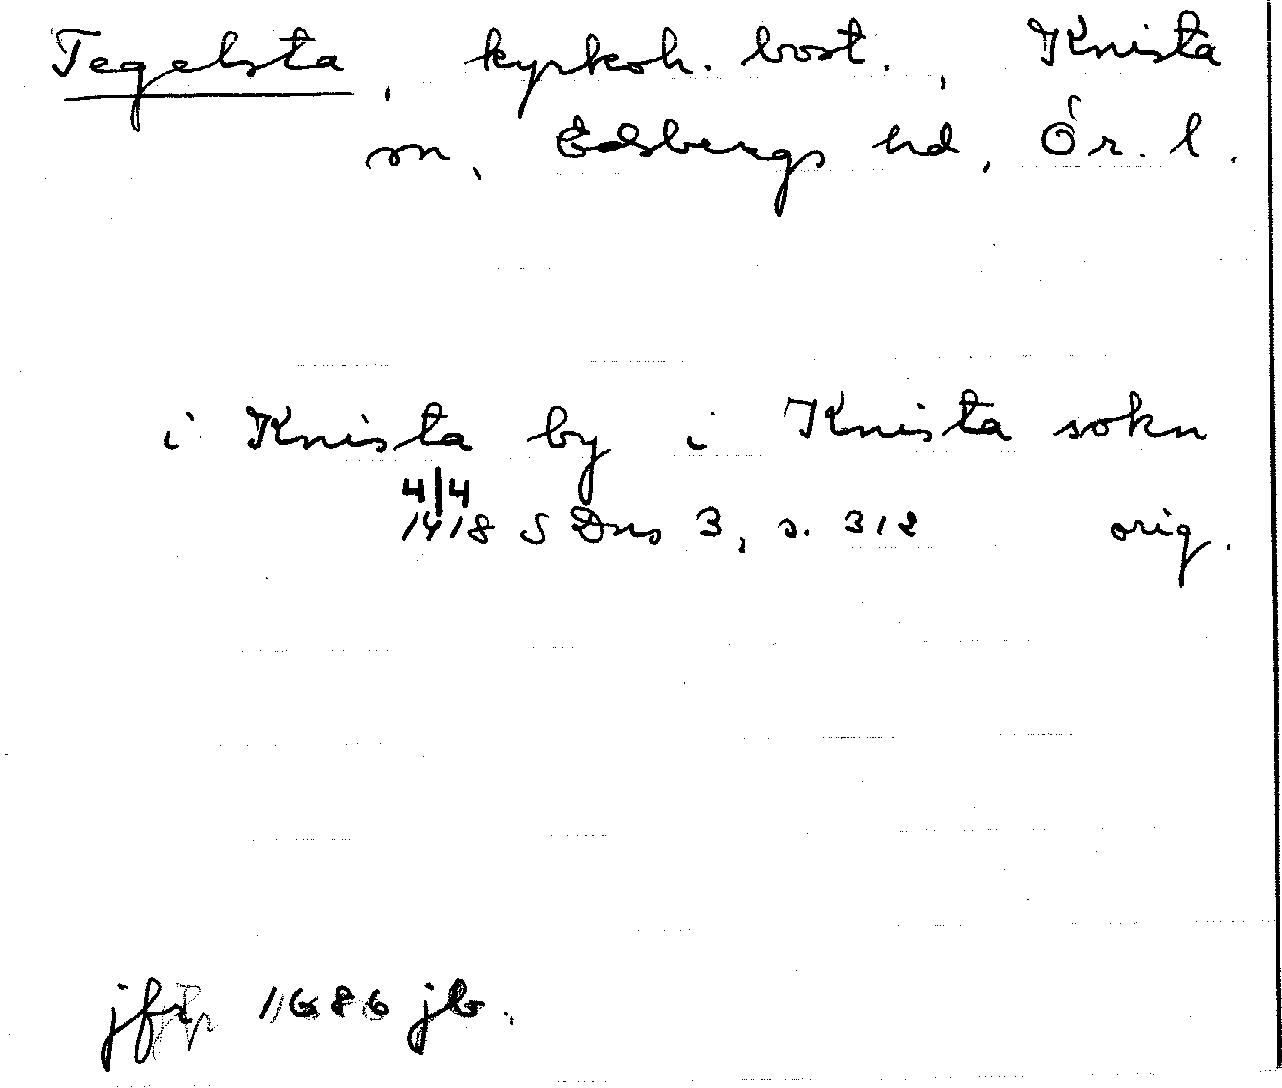 Tegelsta, kyrkoh. bost., Knista
sn, Edsbergs hd, Ör. l.
i Knista by i Knista sokn
4/4
1418 SDns 3, s. 312 orig.
jfr 1686 jb.